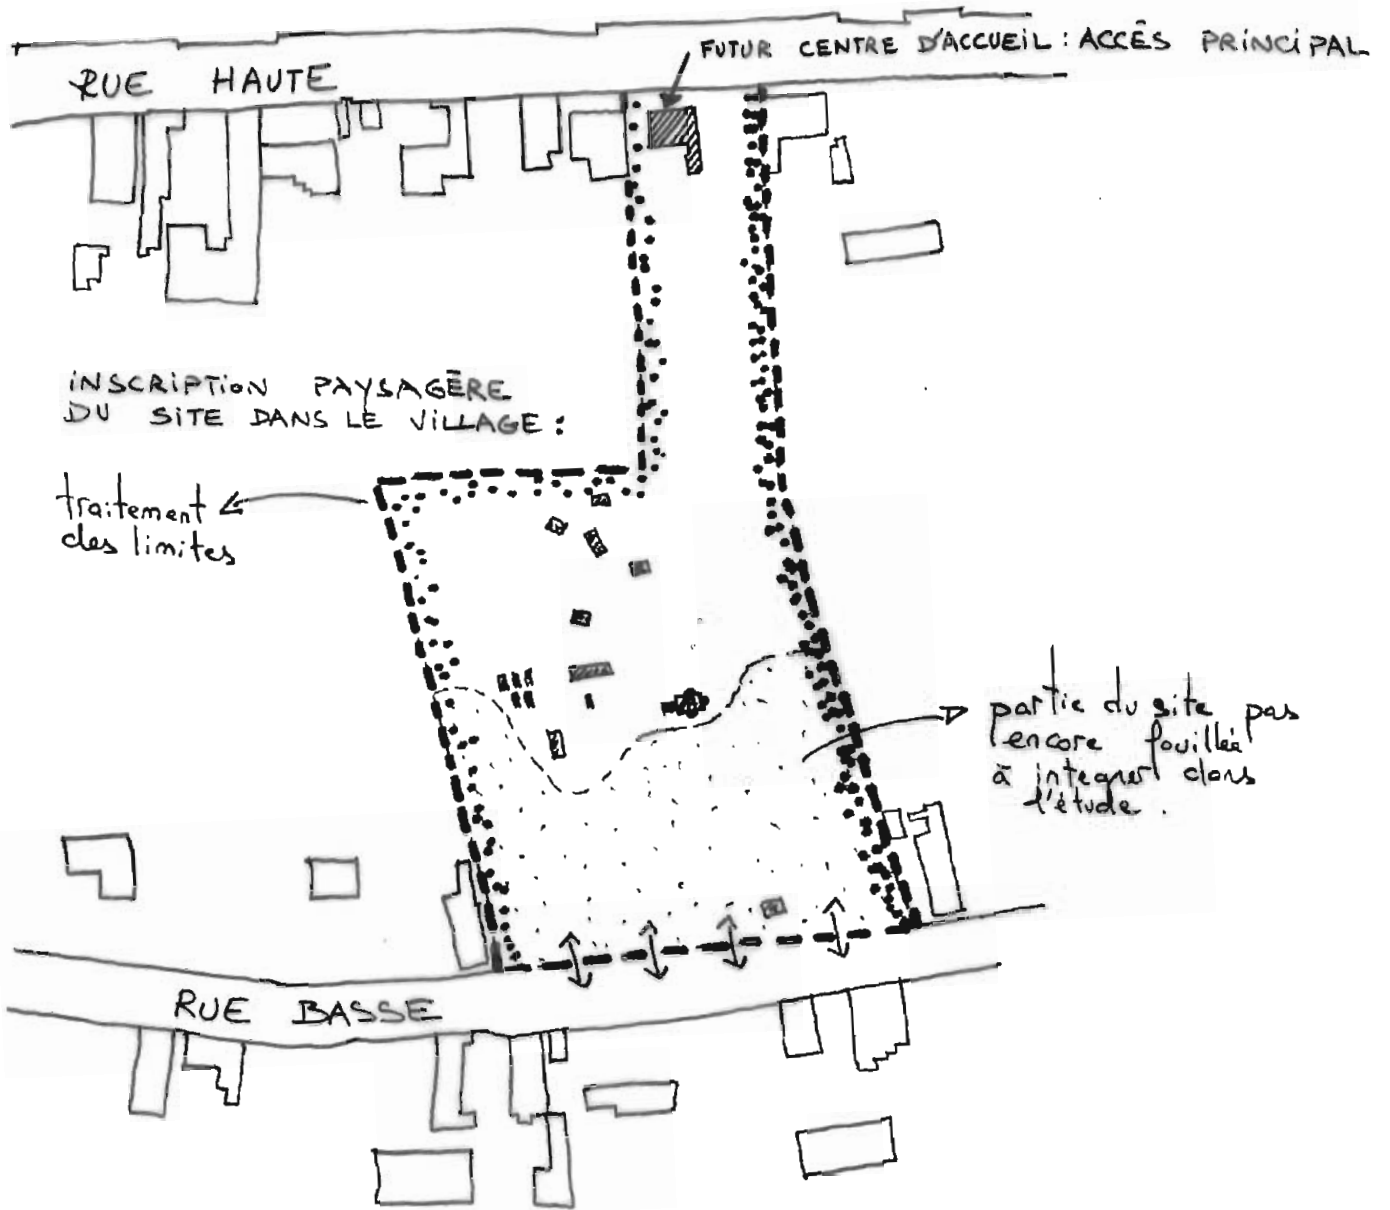 FUTUR CENTRE D'ACCUEIL : ACCÈS PRINCIPAL
RUE HAUTE
INSCRIPTION PAYSAGÈRE
DU SITE DANS LE VILLAGE :
traitement
des limites
partie du site pas
encore fouillée
à integrer dans
l'étude.
RUE BASSE